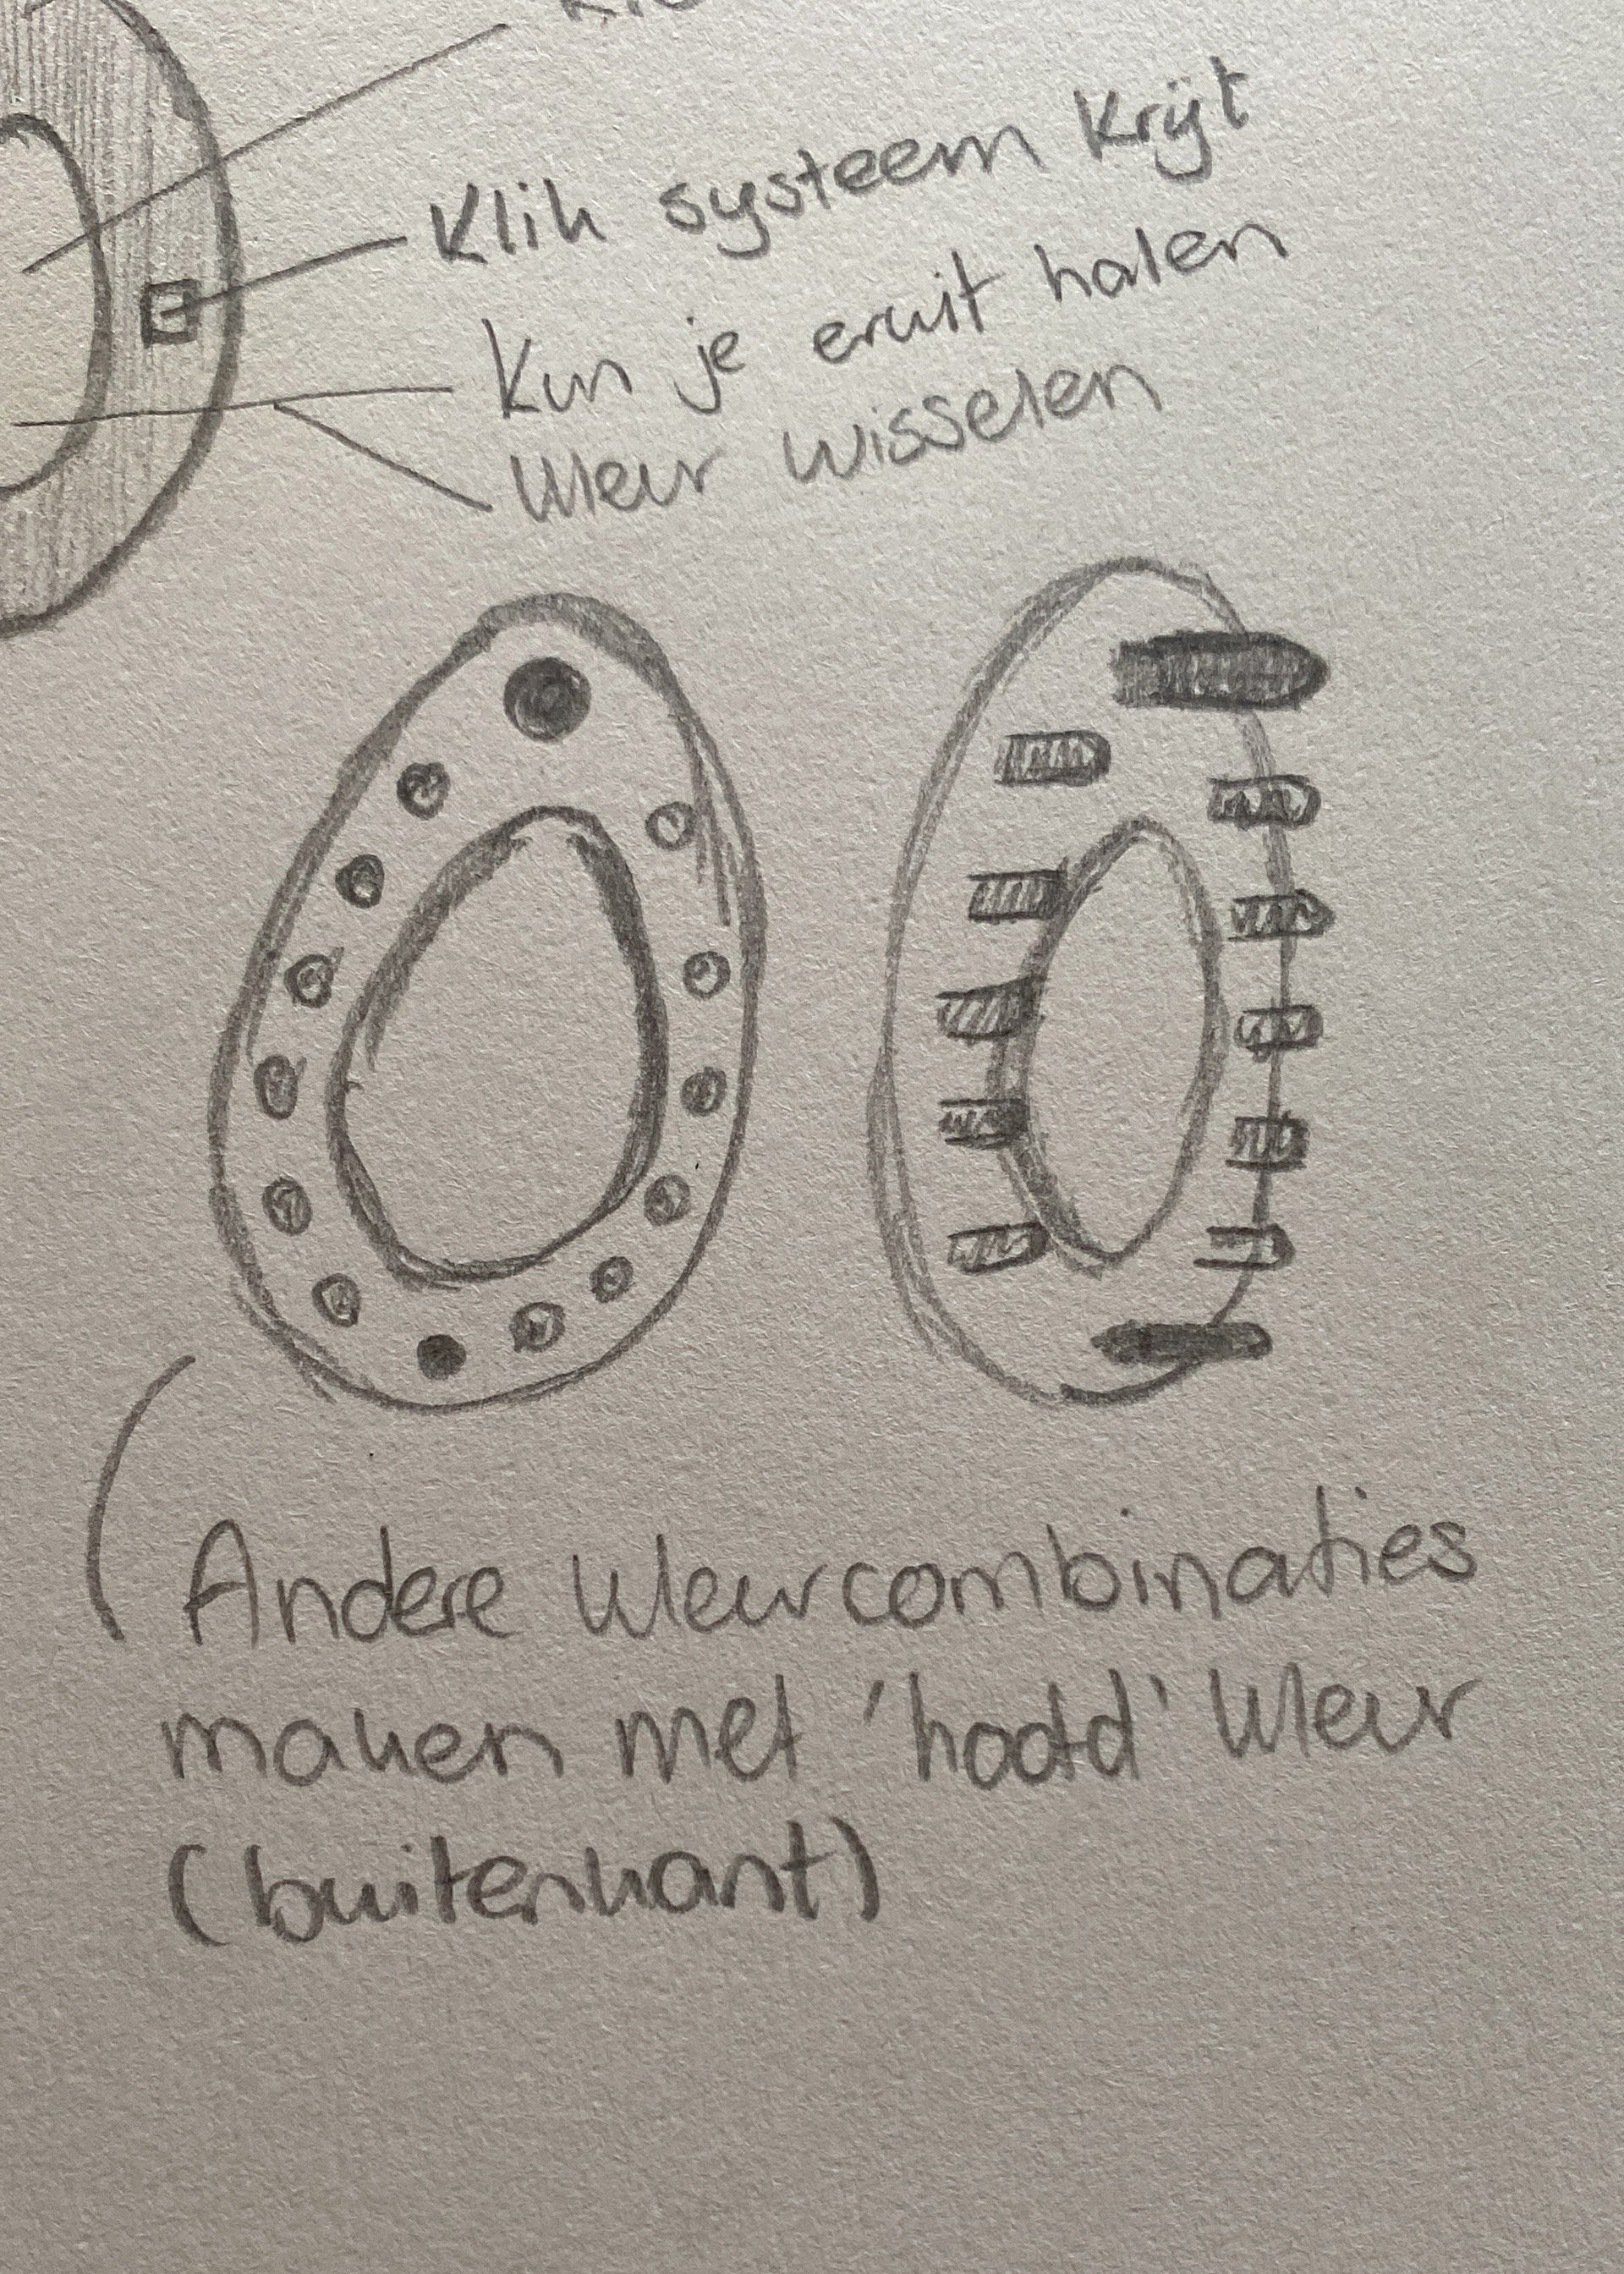 Klik systeem krijt
Kun je eruit halen
kleur wisselen
Andere kleurcombinaties
maken met 'hoofd' kleur
(buitenkant)